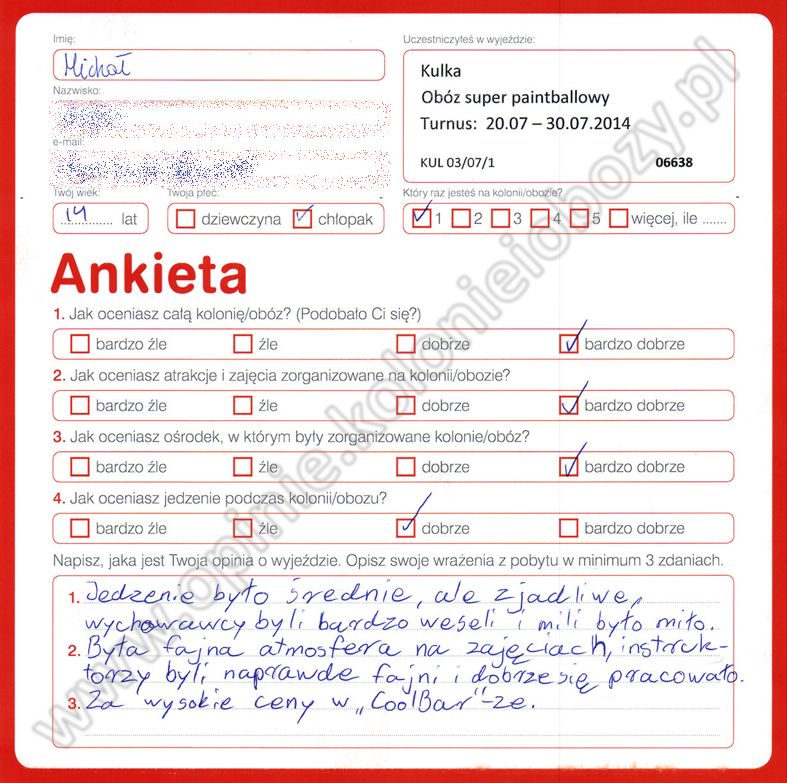 Imię:
Michał
Nazwisko:
e-mail:
Twój wiek:
14 lat
Twoja płeć:
dziewczyna chłopak
Uczestniczyłeś w wyjeździe:
Kulka
Obóz super paintballowy
Turnus: 20.07 – 30.07.2014
KUL 03/07/1 06638
Który raz jesteś na kolonii/obozie?
1 2 3 4 5 więcej, ile .......
Ankieta
1. Jak oceniasz całą kolonię/obóz? (Podobało Ci się?)
bardzo źle źle dobrze bardzo dobrze
2. Jak oceniasz atrakcje i zajęcia zorganizowane na kolonii/obozie?
bardzo źle źle dobrze bardzo dobrze
3. Jak oceniasz ośrodek, w którym były zorganizowane kolonie/obóz?
bardzo źle źle dobrze bardzo dobrze
4. Jak oceniasz jedzenie podczas kolonii/obozu?
bardzo źle źle dobrze bardzo dobrze
Napisz, jaka jest Twoja opinia o wyjeździe. Opisz swoje wrażenia z pobytu w minimum 3 zdaniach.
1. Jedzenie było średnie, ale zjadliwe,
wychowawcy byli bardzo weseli i mili było miło.
2. Była fajna atmosfera na zajęciach, instruk-
torzy byli naprawde fajni i dobrze się pracowało.
3. Za wysokie ceny w „CoolBar"-ze.
www.opinie.kolonieiobozy.pl